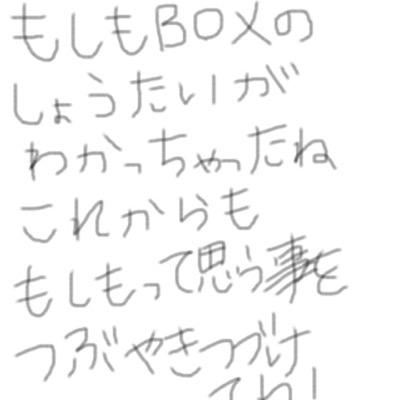 もしもBOXの
しょうたいが
わかっちゃったね
これからも
もしもって思ら事を
つぶやきつづけ
てね!